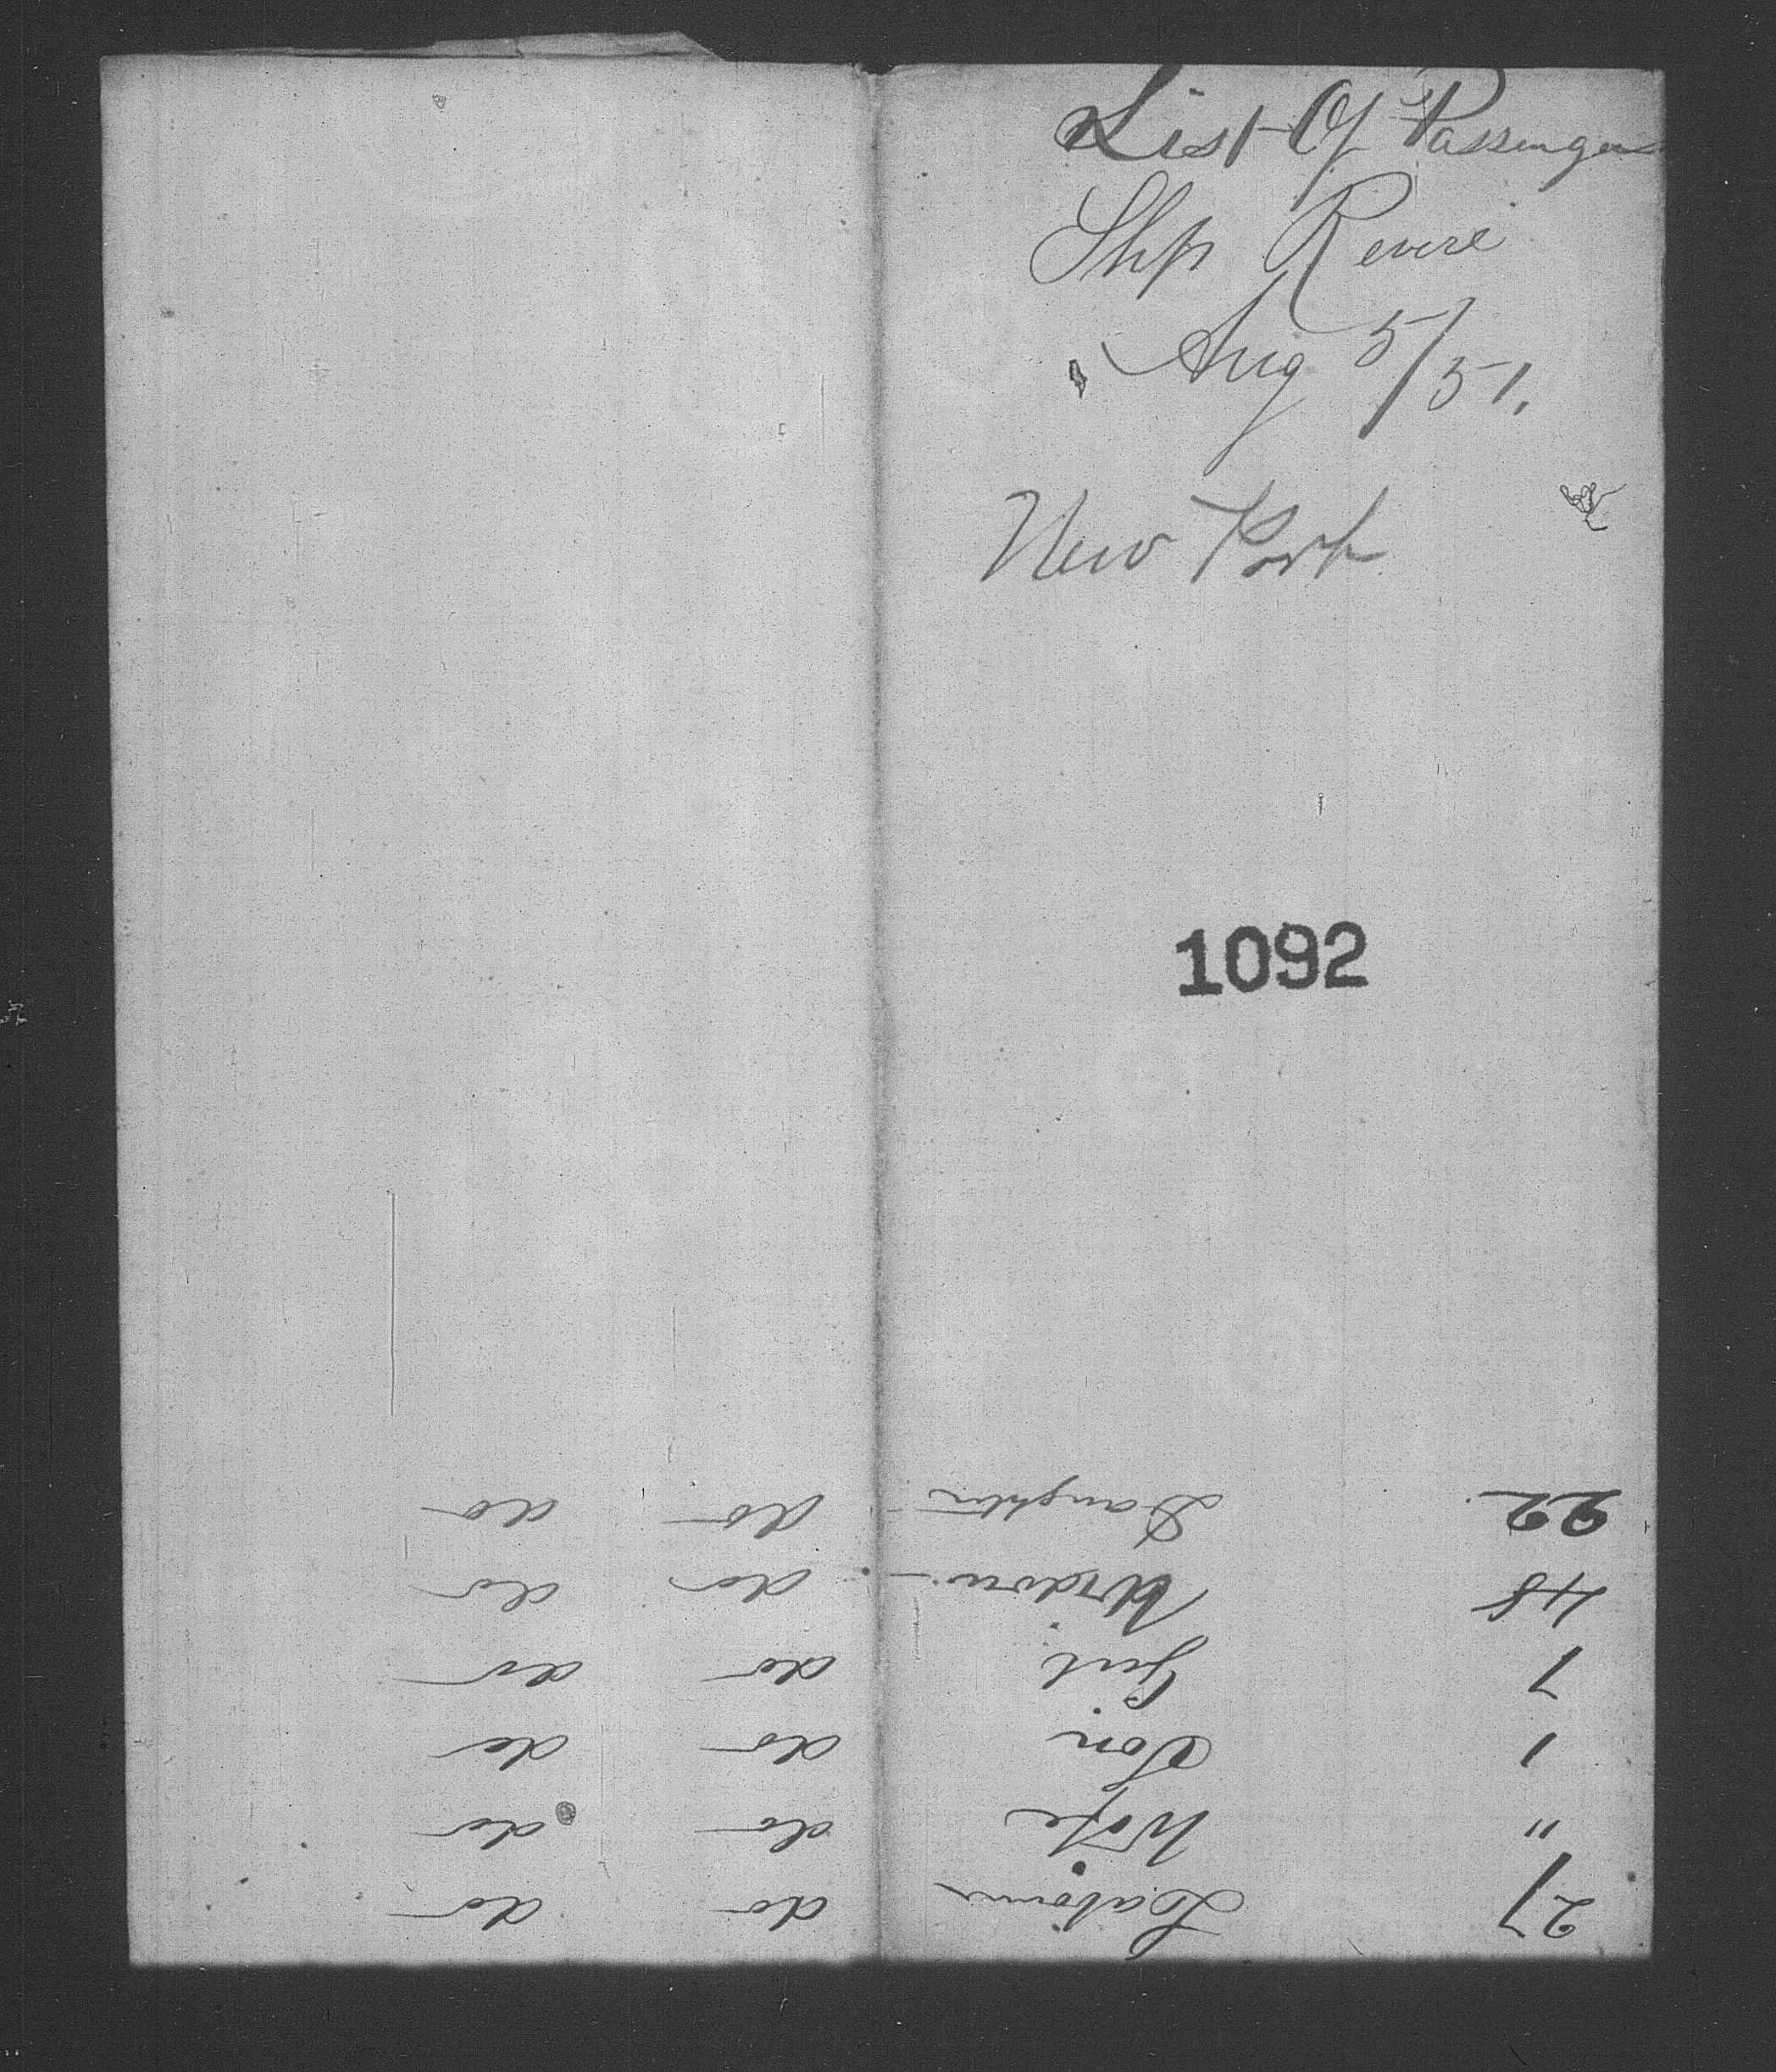 List Of Passengers
Ship Revere
Aug 5/51.
New York
1092
27 Labourer do do
" Wife do do
1 Son do do
7 Girl do do
48 Widow do do
22 Daughter do do